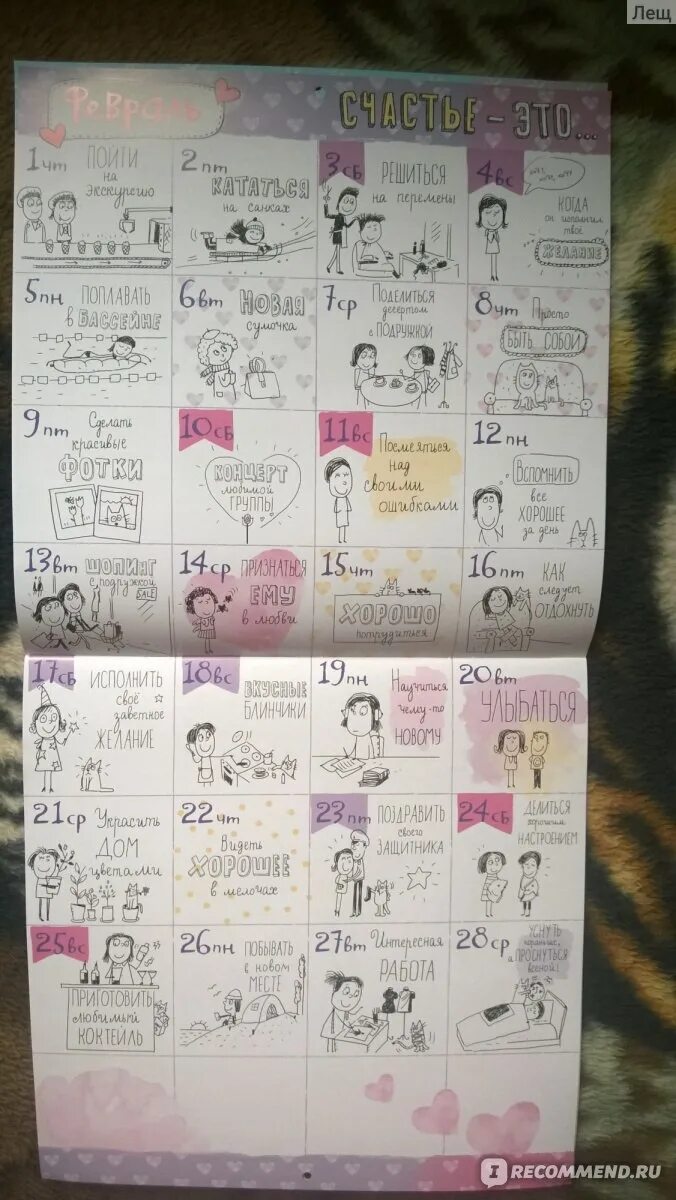 Лещ
Февраль
СЧАСТЬЕ - ЭТО...
1 чт ПОЙТИ
на
экскурсию
2 пт
КАТАТЬСЯ
на санках
3 сб РЕШИТЬСЯ
на перемены
4 вс
КОГДА
он исполнил
твоё
ЖЕЛАНИЕ
5 пн ПОПЛАВАТЬ
в БАССЕЙНЕ
6 вт НОВАЯ
сумочка
7 ср Поделиться
десертом
с ПОДРУЖКОЙ
8 чт Просто
БЫТЬ СОБОЙ
9 пт Сделать
красивые
ФОТКИ
10 сб
КОНЦЕРТ
любимой
ГРУППЫ
11 вс Посмеяться
над
своими
ошибками
12 пн
Вспомнить
все
ХОРОШЕЕ
за день
13 вт ШОПИНГ
с подружкой
SALE
14 ср ПРИЗНАТЬСЯ
ЕМУ
в любви
15 чт
ХОРОШО
потрудиться
16 пт КАК
следует
ОТДОХНУТЬ
17 сб ИСПОЛНИТЬ
своё
заветное
ЖЕЛАНИЕ
18 вс ВКУСНЫЕ
БЛИНЧИКИ
19 пн Научиться
чему-то
НОВОМУ
20 вт
УЛЫБАТЬСЯ
21 ср Украсить
ДОМ
цветами
22 чт
Видеть
ХОРОШЕЕ
в мелочах
23 пт ПОЗДРАВИТЬ
своего
ЗАЩИТНИКА
24 сб ДЕЛИТЬСЯ
хорошим
НАСТРОЕНИЕМ
25 вс
ПРИГОТОВИТЬ
любимый
КОКТЕЙЛЬ
26 пн ПОБЫВАТЬ
в новом
МЕСТЕ
27 вт Интересная
РАБОТА
28 ср УСНУТЬ
и ПРОСНУТЬСЯ
весной!
IRECOMMEND.RU